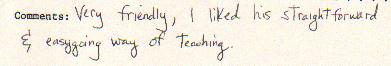 Comments: Very friendly, I liked his straightforward
& easygoing way of teaching.